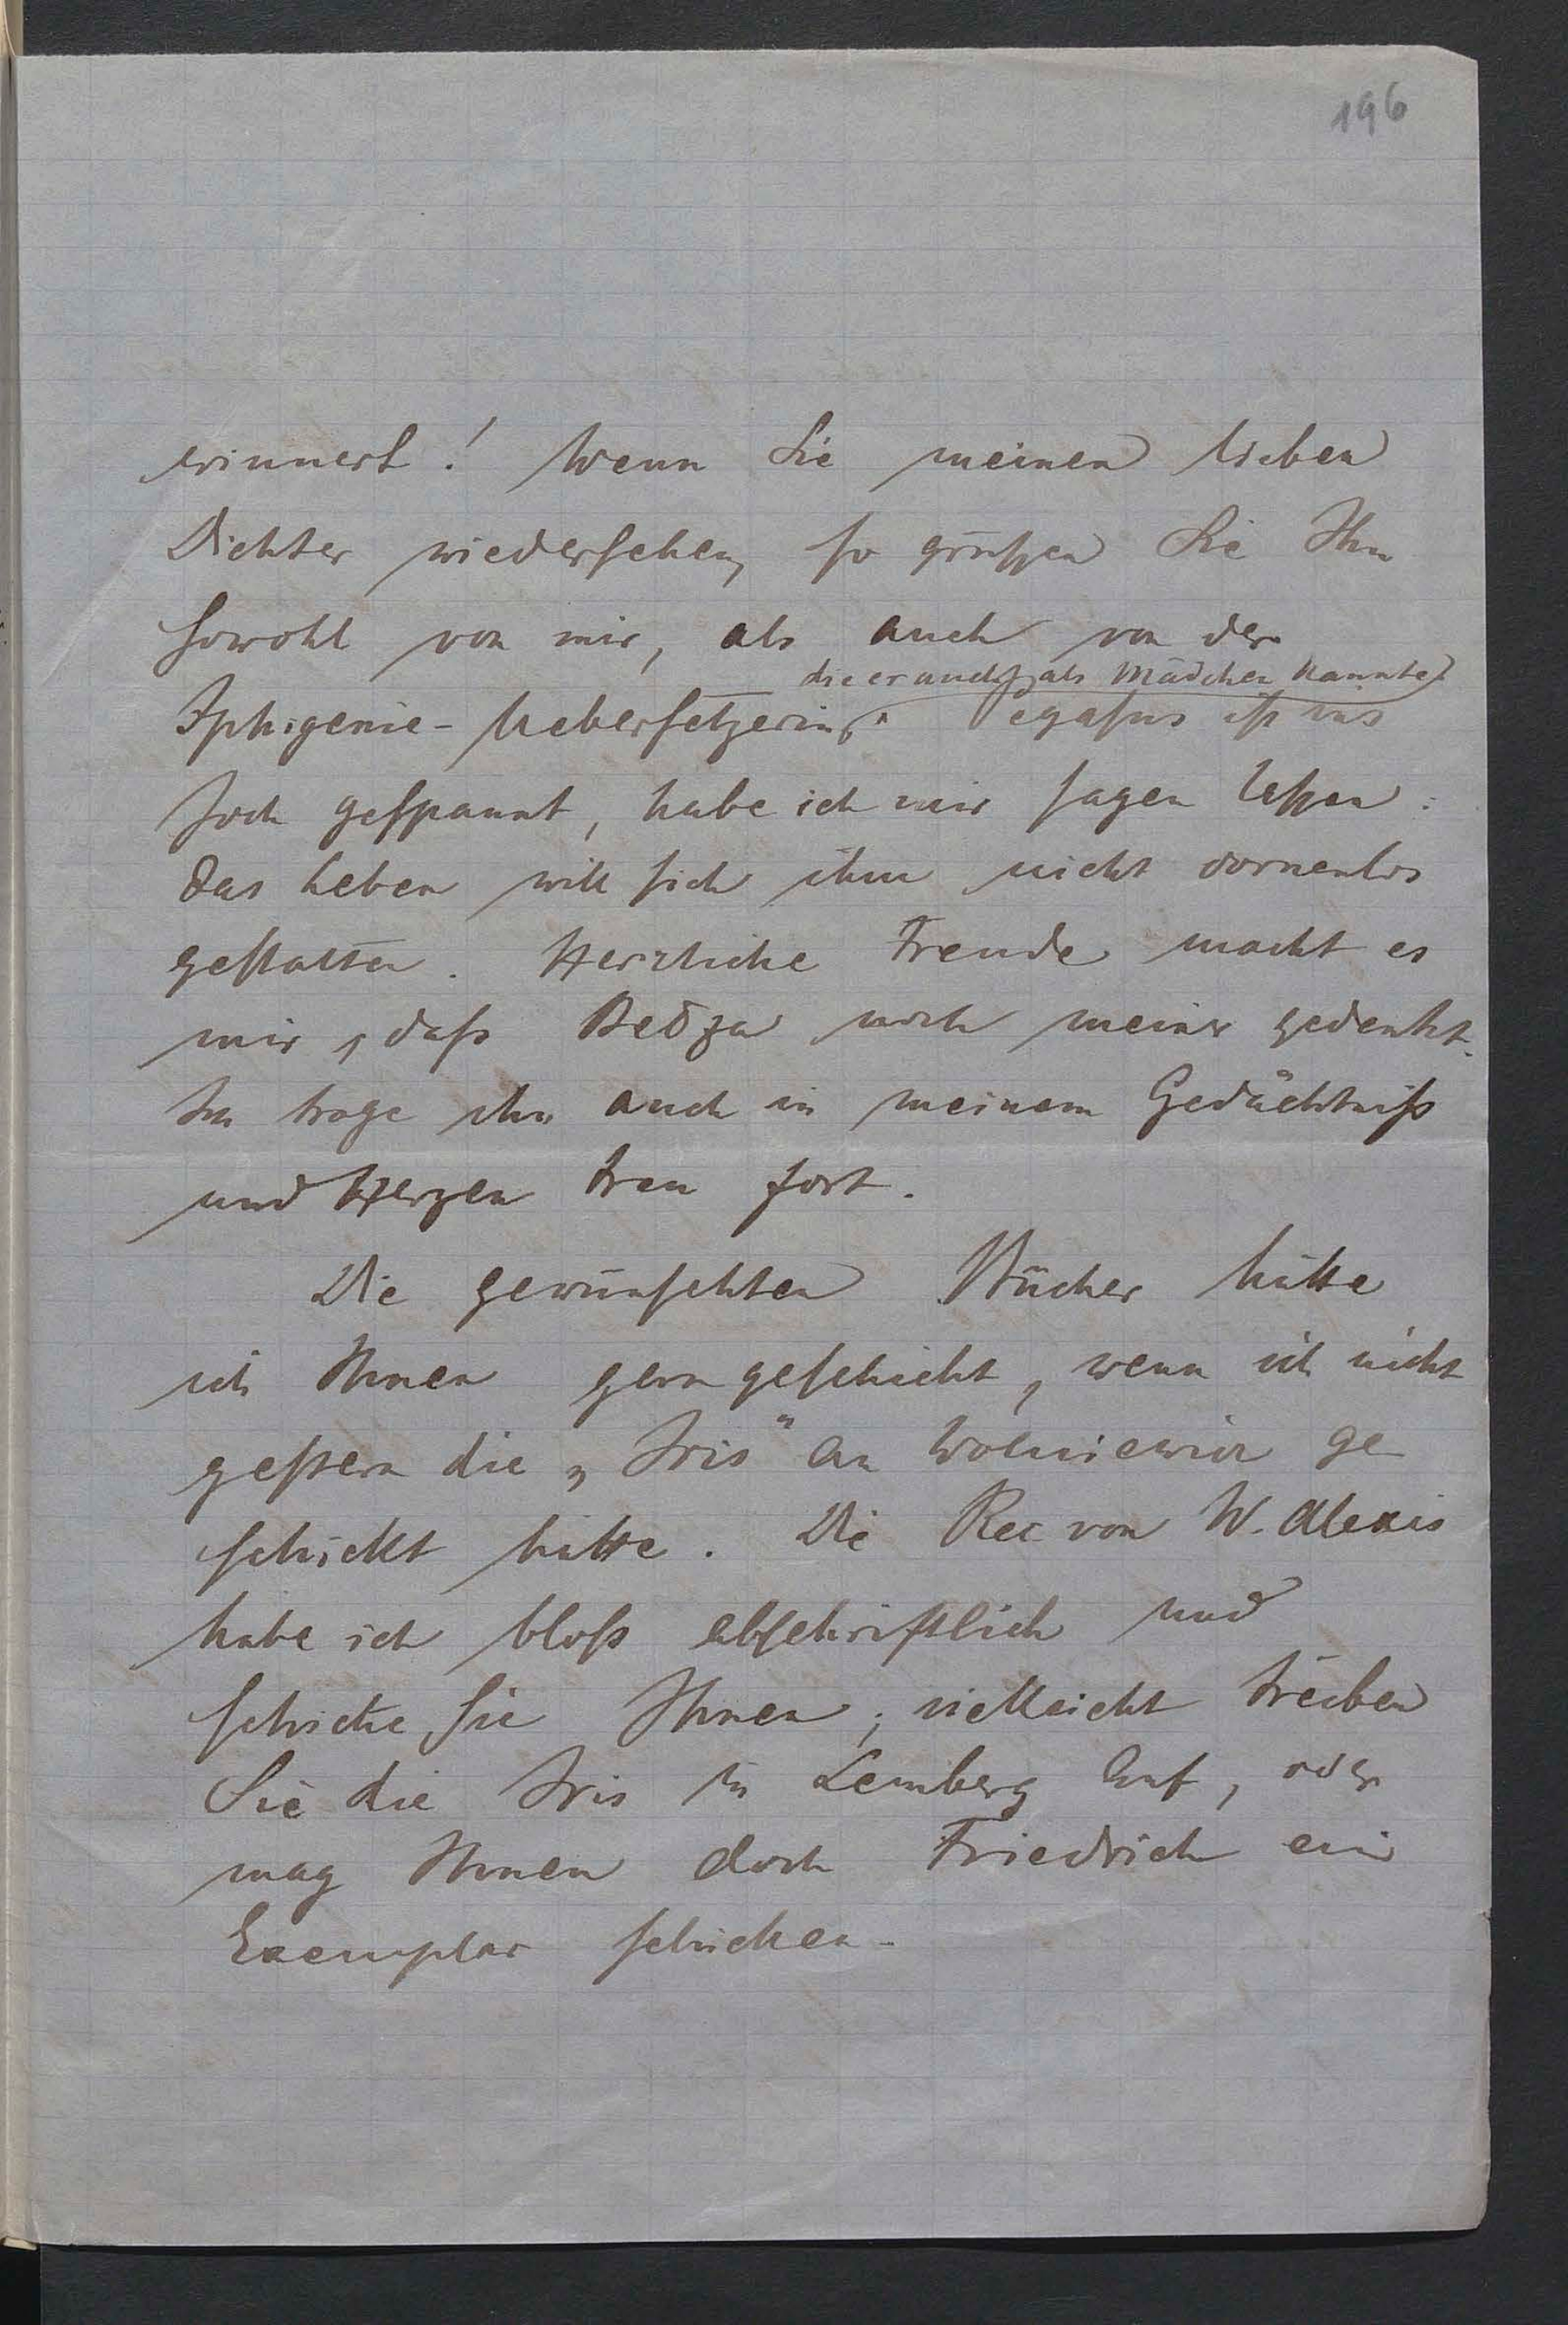 196
erinnert! Wenn Sie meinen lieben
Dichter wiedersehen, so grüßen Sie Ihn
sowohl von mir, als auch von der
die er auch als Mädchen kannte
Iphigenie-Uebersetzerin. egasus ist ins
Joch gespannt, habe ich mir sagen lassen:
das Leben will sich ihm nicht dornenlos
gestalten. Herzliche Freude macht es
mir, daß noch meiner gedenkt.
Ich trage ihn auch in meinem Gedächtniß
und Herzen treu fort.
Die gewünschten Bücher hätte
ich Ihnen gern geschickt, wenn ich nicht
gestern die „Iris" an Wolniewicz ge
schickt hätte. Die Rec von W. Alexis
habe ich bloß abschriftlich und
schicke sie Ihnen; vielleicht treiben
Sie die Iris in Lemberg auf, oder
mag Ihnen doch Friedrich ein
Exemplar schicken.